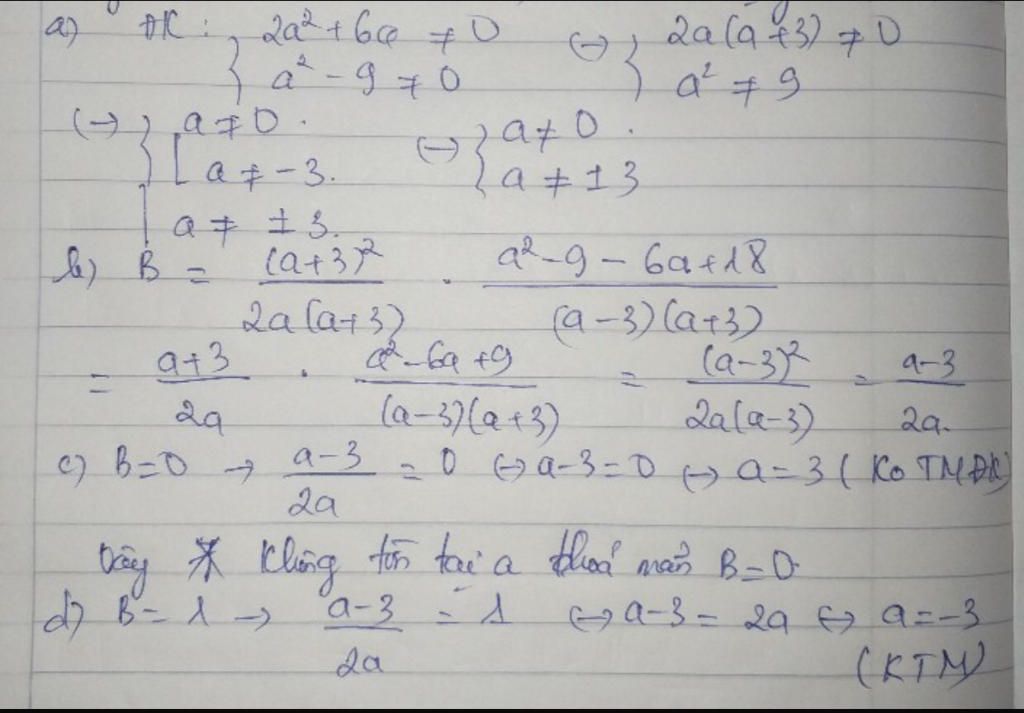 a) ĐK: { 2a² + 6a ≠ 0 (→) { 2a(a+3) ≠ 0
a² - 9 ≠ 0 a² ≠ 9
(→) { [ a ≠ 0. (→) { a ≠ 0.
a ≠ -3. a ≠ ±3
a ≠ ±3.
b) B = (a+3)² / 2a(a+3) . a² - 9 - 6a + 18 / (a-3)(a+3)
= a+3 / 2a . a² - 6a + 9 / (a-3)(a+3) = (a-3)² / 2a(a-3) = a-3 / 2a.
c) B=0 → a-3 / 2a = 0 (→ a-3=0 (→ a=3 (Ko TMĐK)
Vậy không tồn tại a thoả mãn B=0.
d) B=1 → a-3 / 2a = 1 (→ a-3 = 2a ↔ a=-3
(KTM)